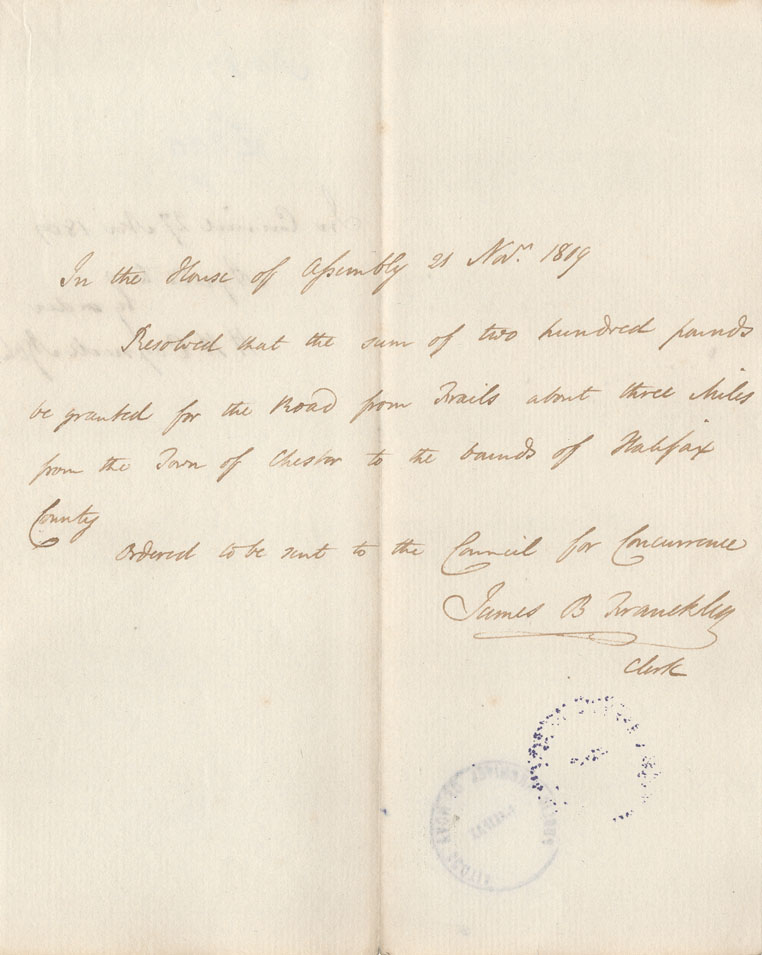 In the House of Assembly 21 Nov.r 1809
Resolved that the sum of two hundred pounds
be granted for the Road from Frails about three Miles
from the Town of Chester to the bounds of Halifax
County
Ordered to be sent to the Council for Concurrence
James B Francklin
Clerk